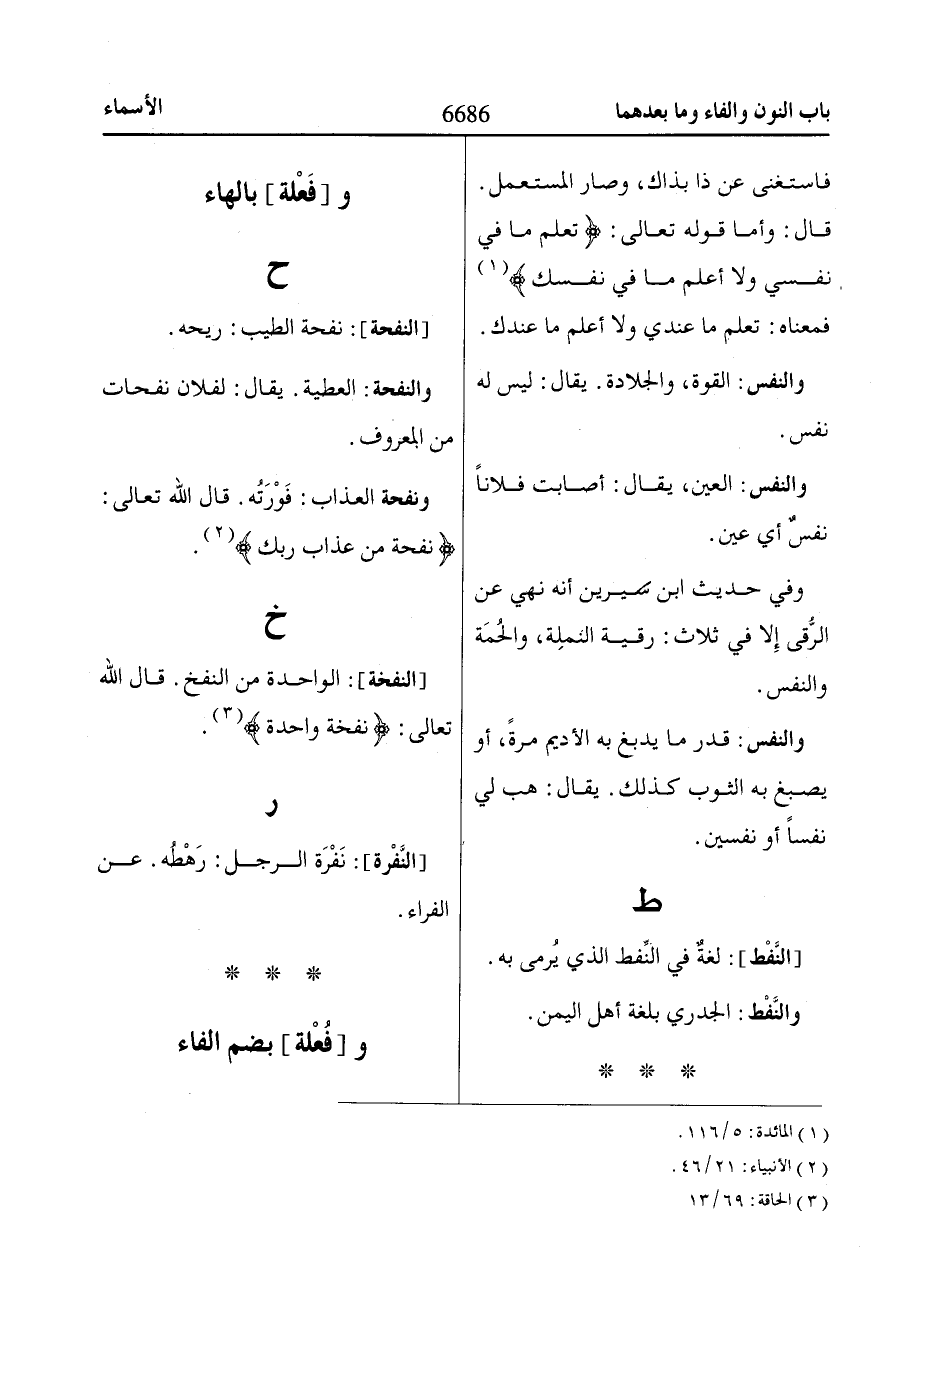 باب النون والفاء وما بعدهما
6686
الأسماء
فاستغنى عن ذا بذاك، وصار المستعمل.
قال: وأما قوله تعالى: ﴿ تعلم ما في
نفسي ولا أعلم ما في نفسك ﴾(١)
فمعناه: تعلم ما عندي ولا أعلم ما عندك.
والنفس: القوة، والجلادة. يقال: ليس له
نفس.
والنفس: العين، يقال: أصابت فلاناً
نفسٌ أي عين.
وفي حديث ابن سيرين أنه نهي عن
الرُّقى إلا في ثلاث: رقية النملة، والحُمَة
والنفس.
والنفس: قدر ما يدبغ به الأديم مرةً، أو
يصبغ به الثوب كذلك. يقال: هب لي
نفساً أو نفسين.
ط
[النَّفْط]: لغةٌ في النِّفط الذي يُرمى به.
والنَّفْط: الجدري بلغة أهل اليمن.
* * *
و [فَعْلة] بالهاء
ح
[النفحة]: نفحة الطيب: ريحه.
والنفحة: العطية. يقال: لفلان نفحات
من المعروف.
ونفحة العذاب: فَوْرَتُه. قال الله تعالى:
﴿ نفحة من عذاب ربك ﴾(٢).
خ
[النفخة]: الواحدة من النفخ. قال الله
تعالى: ﴿ نفخة واحدة ﴾(٣).
ر
[النَّفْرة]: نَفْرَة الرجل: رَهْطُه. عن
الفراء.
* * *
و [فُعْلة] بضم الفاء
(١) المائدة: ٥/١١٦.
(٢) الأنبياء: ٢١/٤٦.
(٣) الحاقة: ٦٩/١٣